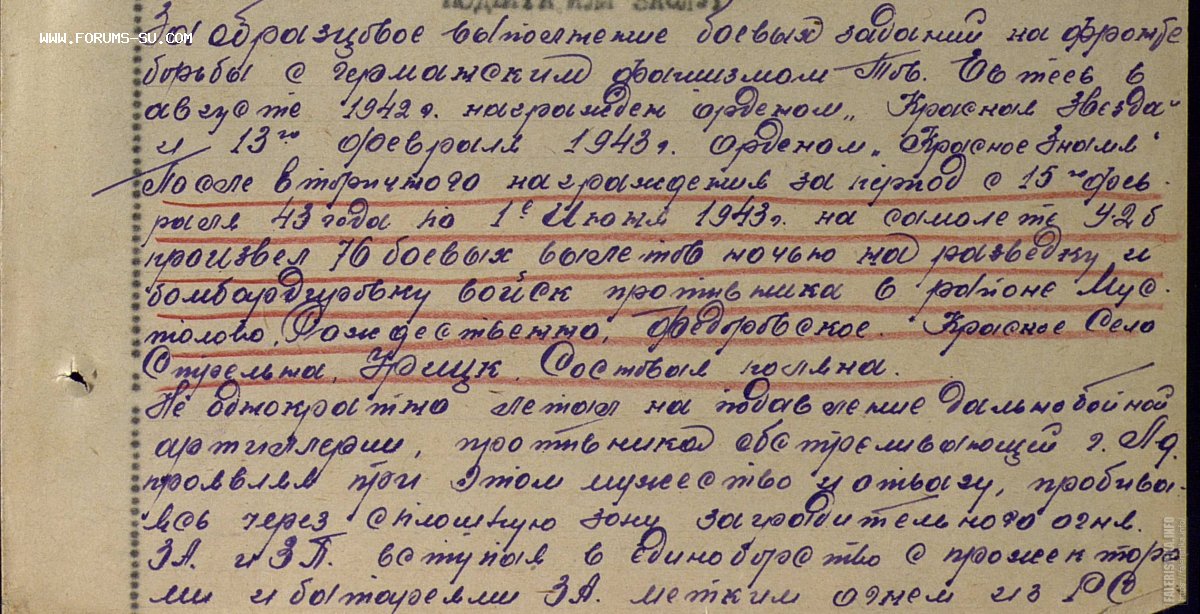 За образцовое выполнение боевых заданий на фронте
WWW.FORUMS-SU.COM
борьбы с германским фашизмом Тов. Евтеев в
августе 1942 г. награжден орденом „Красная звезда"
и 13го февраля 1943 г. орденом „Красное Знамя"
После вторичного награждения за период с 15го фев-
раля 43 года по 1е Июня 1943 г. на самолете У2б
произвел 76 боевых вылетов ночью на разведку и
бомбардировку войск противника в районе Мус-
толово, Рождественно, Федоровское. Красное Село
Стрельна, Урицк, Сосновая поляна.
Не однократно летал на подавление дальнобойной
артиллерии, противника обстреливающий г. Лд.
проявляя при этом мужество и отвагу, пробива-
ясь через сплошную зону заградительного огня.
ЗА. и ЗП. вступая в единоборство с прожектора-
ми и батареями ЗА. метким огнем из РС
FALERISTIKA.INFO